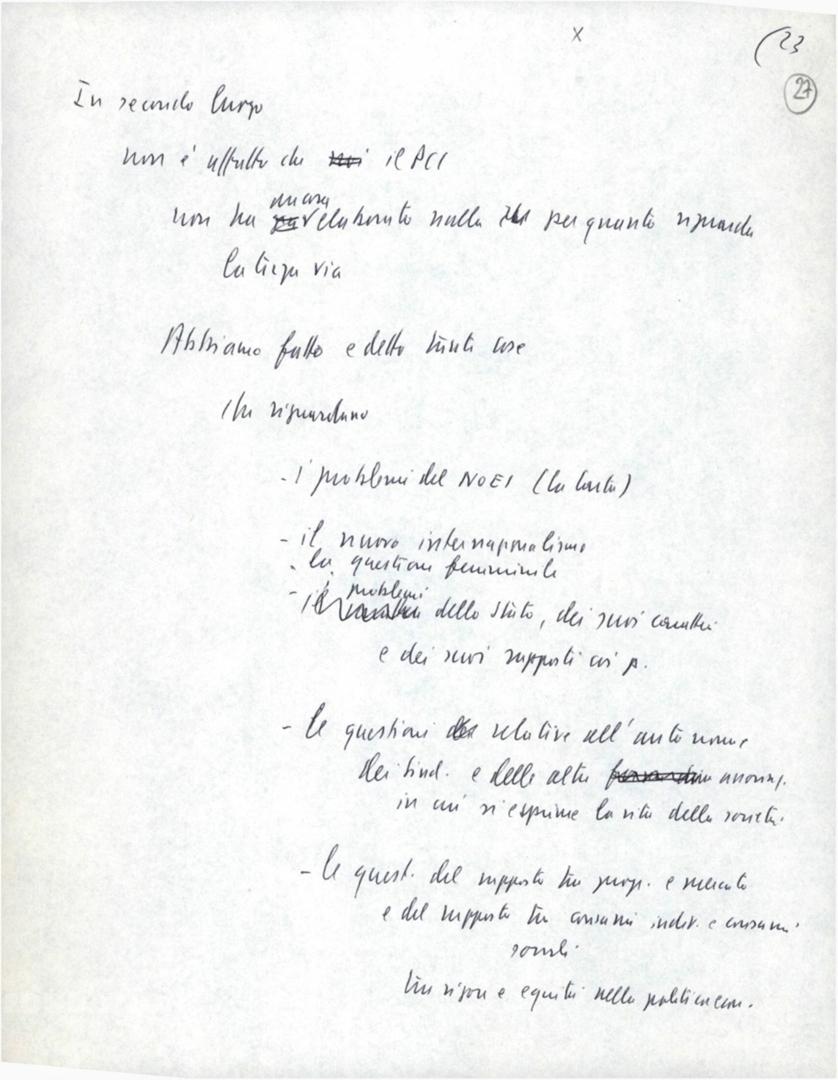 x
(23
27
In secondo luogo
non è affatto che noi il PCI
ancora
non ha elaborato nulla per quanto riguarda
la terza via
Abbiamo fatto e detto tante cose
che riguardano
- i problemi del NOEI (la carta)
- il nuovo internazionalismo
- la questione femminile
- i problemi
dello Stato, dei suoi caratteri
e dei suoi rapporti coi p.
- le questioni relative all'autonomia
dei sind. e delle altre
in cui si esprime la vita della società.
- le quest. del rapporto tra progr. e mercato
e del rapporto tra consumi indiv. e consumi
sociali
tra rigore e equità nella politica econ.